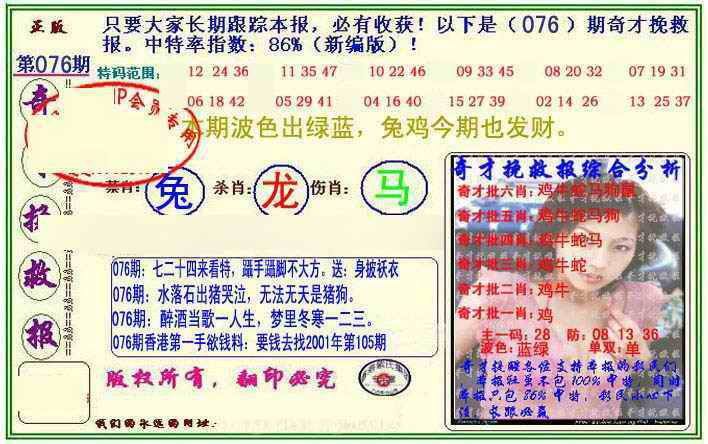 正版
只要大家长期跟踪本报，必有收获！以下是（076）期奇才挽救
报。中特率指数：86%（新编版）！
第076期
特码范围：
12 24 36 11 35 47 10 22 46 09 33 45 08 20 32 07 19 31
06 18 42 05 29 41 04 16 40 15 27 39 02 14 26 13 25 37
P会员专用
本期波色出绿蓝，兔鸡今期也发财。
奇
救
报
禁肖：兔 杀肖：龙 伤肖：马
076期：七二十四来看特，蹑手蹑脚不大方。送：身披袄衣
076期：水落石出猪哭泣，无法无天是猪狗。
076期：醉酒当歌一人生，梦里冬寒一二三。
076期香港第一手欲钱料：要钱去找2001年第105期
版权所有，翻印必究
我们的永远的网址：
奇才挽救报综合分析
奇才批六肖：鸡牛蛇马狗鼠
奇才批五肖：鸡牛蛇马狗
奇才批四肖：鸡牛蛇马
奇才批三肖：鸡牛蛇
奇才批二肖：鸡牛
奇才批一肖：鸡
主一码：28 防：08 13 36
波色：蓝绿 单双：单
奇才提醒各位支持本报的彩民们
本报担虽不包100%中特，同时
本报只包86%中特，彩民小心下
注，长跟必赢